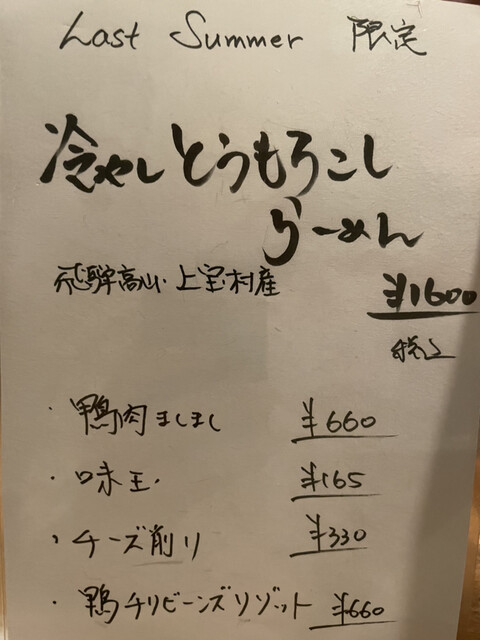 Last Summer 限定
冷やしとうもろこし
らーめん
飛騨高山・上宝村産
¥1600
税込
・鴨肉ましまし ¥660
・味玉・ ¥165
・チーズ削り ¥330
・鴨チリビーンズリゾット ¥660